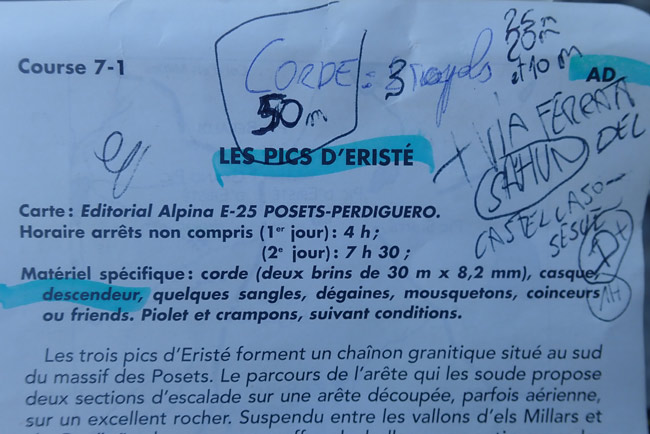 25 m
20 m
et 10 m
Course 7-1
CORDE = 3
50 m
AD
LES PICS D'ERISTÉ
+ VIA FERRATA
SAHUN DEL
CASTELLASO-
SESUE
AD+
Carte : Editorial Alpina E-25 POSETS-PERDIGUERO.
Horaire arrêts non compris (1er jour) : 4 h ;
(2e jour) : 7 h 30 ;
Matériel spécifique : corde (deux brins de 30 m x 8,2 mm), casque,
descendeur, quelques sangles, dégaines, mousquetons, coinceurs
ou friends. Piolet et crampons, suivant conditions.
Les trois pics d'Eristé forment un chaînon granitique situé au sud
du massif des Posets. Le parcours de l'arête qui les soude propose
deux sections d'escalade sur une arête découpée, parfois aérienne,
sur un excellent rocher. Suspendu entre les vallons d'els Millars et